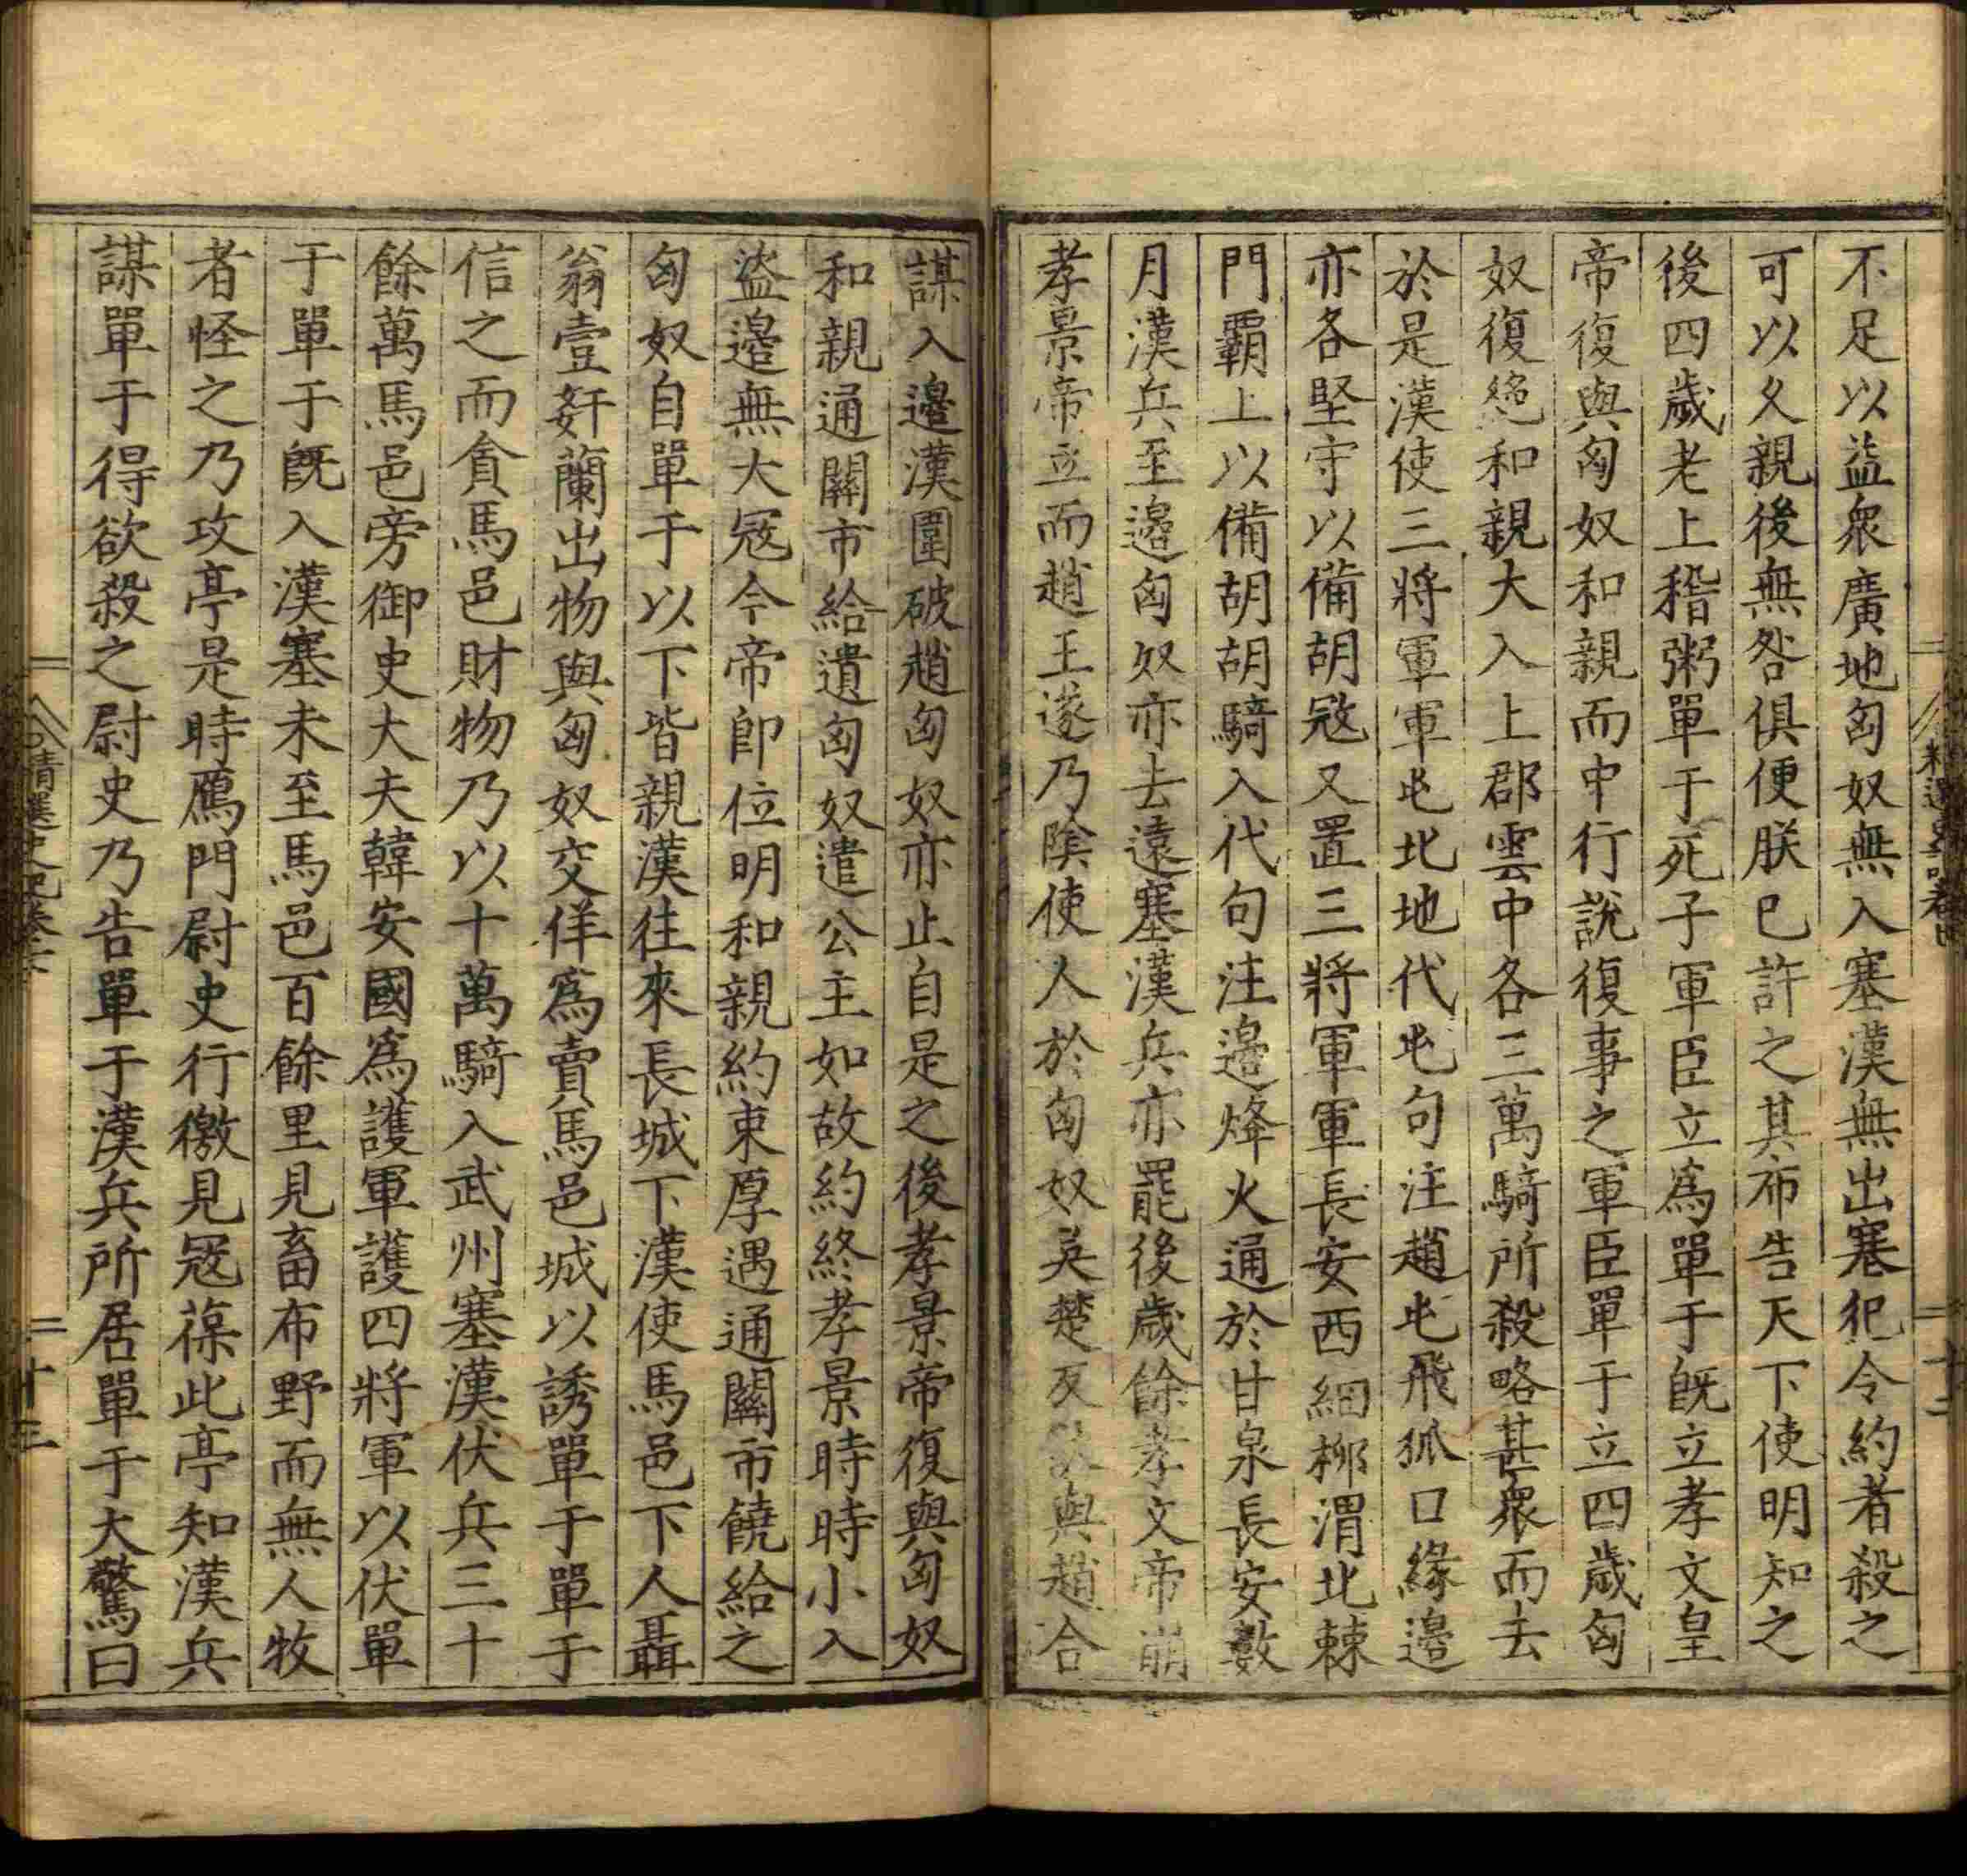 不足以益衆廣地匈奴無入塞漢無出塞犯令約者殺之
可以久親後無咎俱便朕已許之其布告天下使明知之
後四歲老上稽粥單于死子軍臣立爲單于既立孝文皇
帝復與匈奴和親而中行說復事之軍臣單于立四歲匈
奴復絶和親大入上郡雲中各三萬騎所殺略甚衆而去
於是漢使三將軍軍屯北地代屯句注趙屯飛狐口緣邊
亦各堅守以備胡冦又置三將軍軍長安西細柳渭北棘
門覇上以備胡胡騎入代句注邊烽火通於甘泉長安數
月漢兵至邊匈奴亦去遠塞漢兵亦罷後歲餘孝文帝崩
孝景帝立而趙王遂乃陰使人於匈奴吳楚反與趙合
謀入邊漢圍破趙匈奴亦止自是之後孝景帝復與匈奴
和親通關市給遺匈奴遣公主如故約終孝景時時小入
盜邊無大冦今帝卽位明和親約束厚遇通關市饒給之
匈奴自單于以下皆親漢往來長城下漢使馬邑下人聶
翁壹奸蘭出物與匈奴交佯爲賣馬邑城以誘單于單于
信之而貪馬邑財物乃以十萬騎入武州塞漢伏兵三十
餘萬馬邑旁御史大夫韓安國爲護軍護四將軍以伏單
于單于既入漢塞未至馬邑百餘里見畜布野而無人牧
者怪之乃攻亭是時鴈門尉史行徼見冦葆此亭知漢兵
謀單于得欲殺之尉史乃告單于漢兵所居單于大驚曰
十三